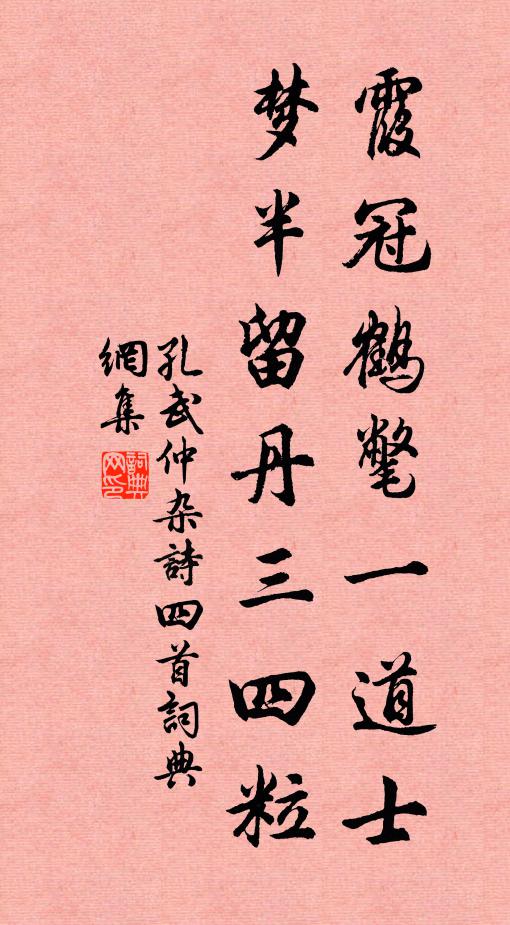 霞冠鶴氅一道士
梦半留丹三四粒
孔武仲杂詩四首詞典
網集
詞典
网印